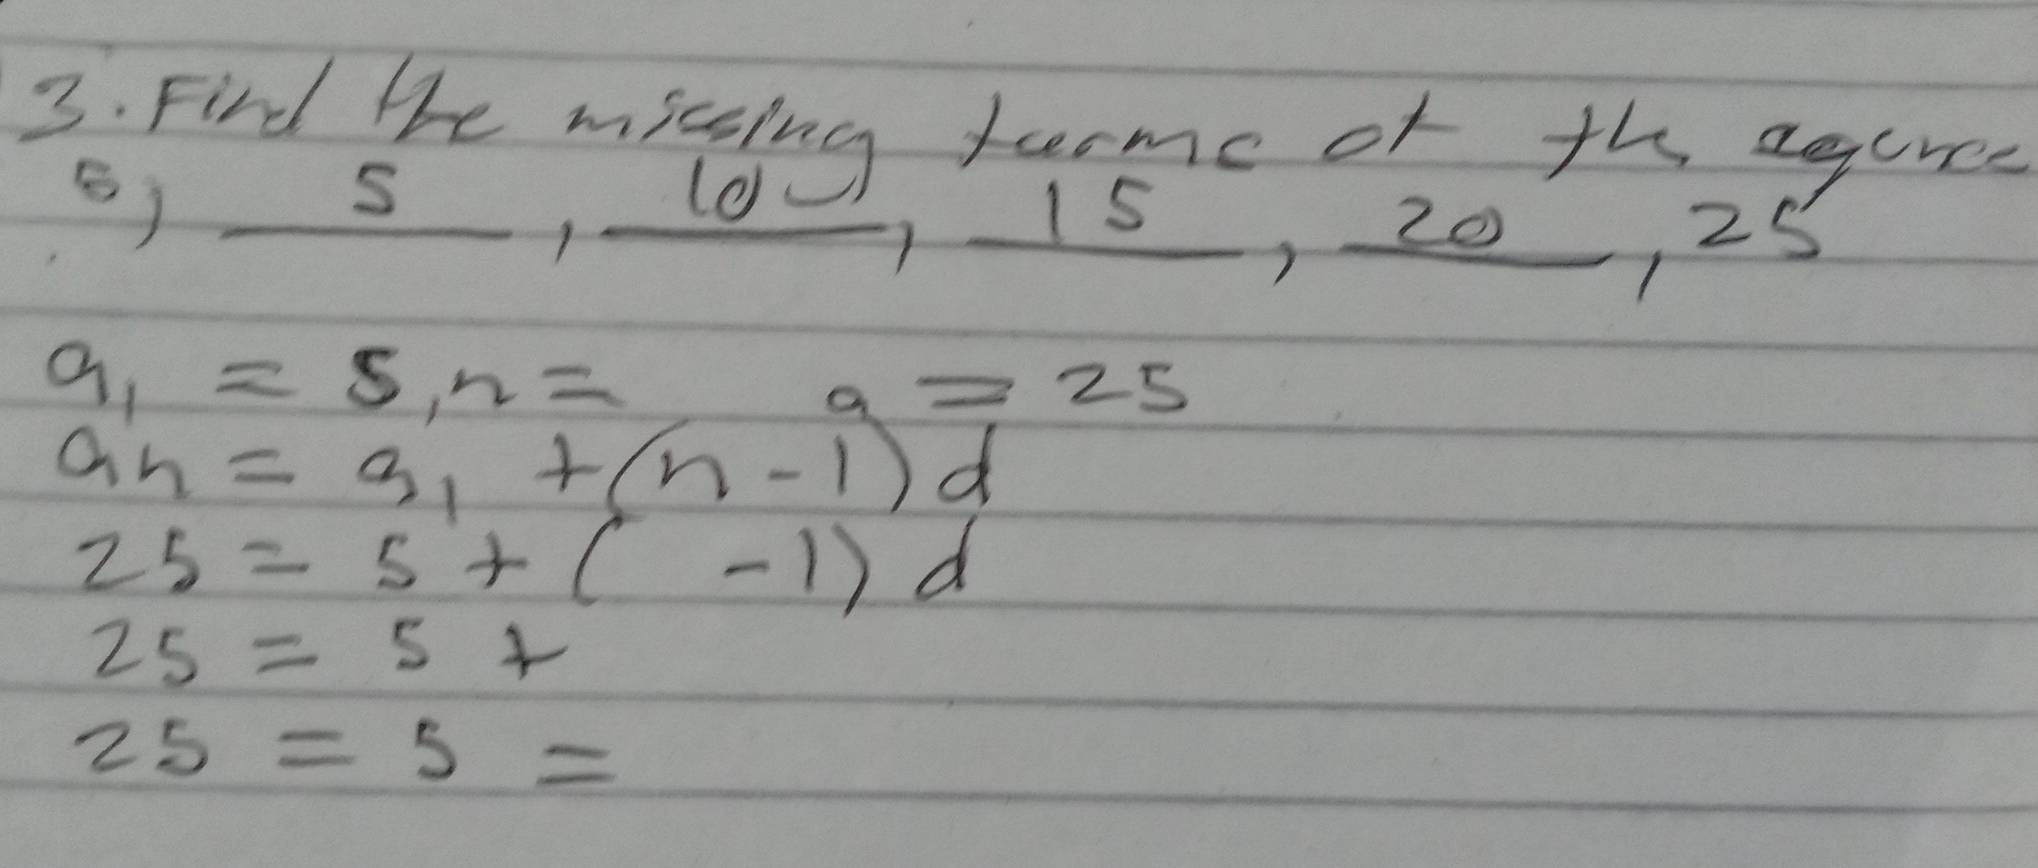 3. Find the missing terms of the
5, 5, 10, 15, 20, 25
a1 = 5, n = a = 25
an = a1 + (n - 1) d
25 = 5 + ( - 1) d
25 = 5 +
25 = 5 =